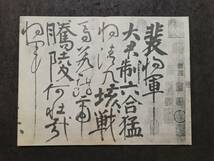 裴将軍
大君制六合猛
将清九垓戰
馬若龍虎
騰陵何壮哉
将軍